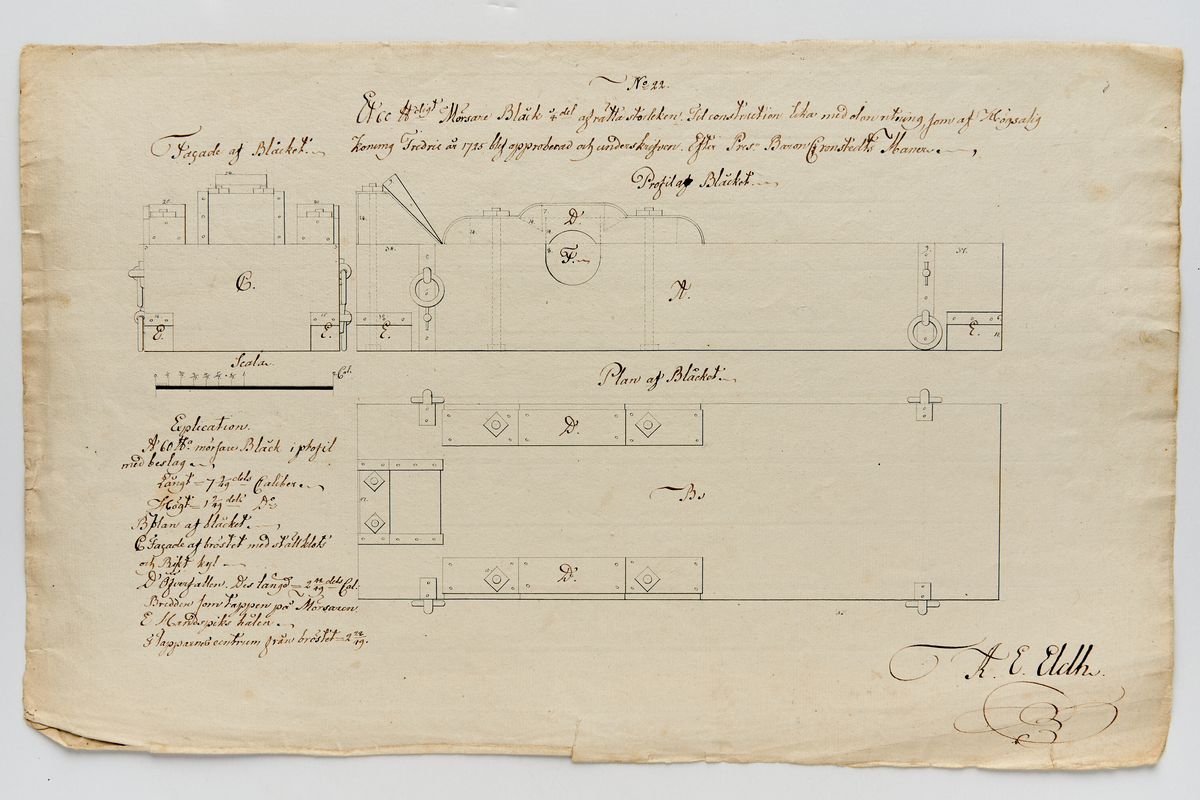 No 22.
Ett 60 ℔digt Mörsare Bläck 1/4 del af rätta storleken. Til construction lika med den ritning som af Högsalig
Konung Fredric år 1725 blif approberad och underskrifven. Efter Pres. Baron Cronstedts Maner.
Façade af Bläcket.
Profil af Bläcket.
D.
F.
C.
A.
E. E. E. E.
Scala
Cal.
Plan af Bläcket.
Explication.
A 60 ℔. mörsare Bläck i profil
med beslag.
Långt = 7 2/49 dels Caliber.
Högt = 1 2/49 dels Do
B plan af bläcket.
C Façade af bröstet med ställklots
och Rikt kyl
D Öfverfallen. Des langd = 2 22/49 dels Cal.
Bredden som tappen på Mörsaren.
E Handspiks hålen.
F Tapparnes centrum från bröstet = 2 22/49.
D.
B.
D.
A. E. Eldh.